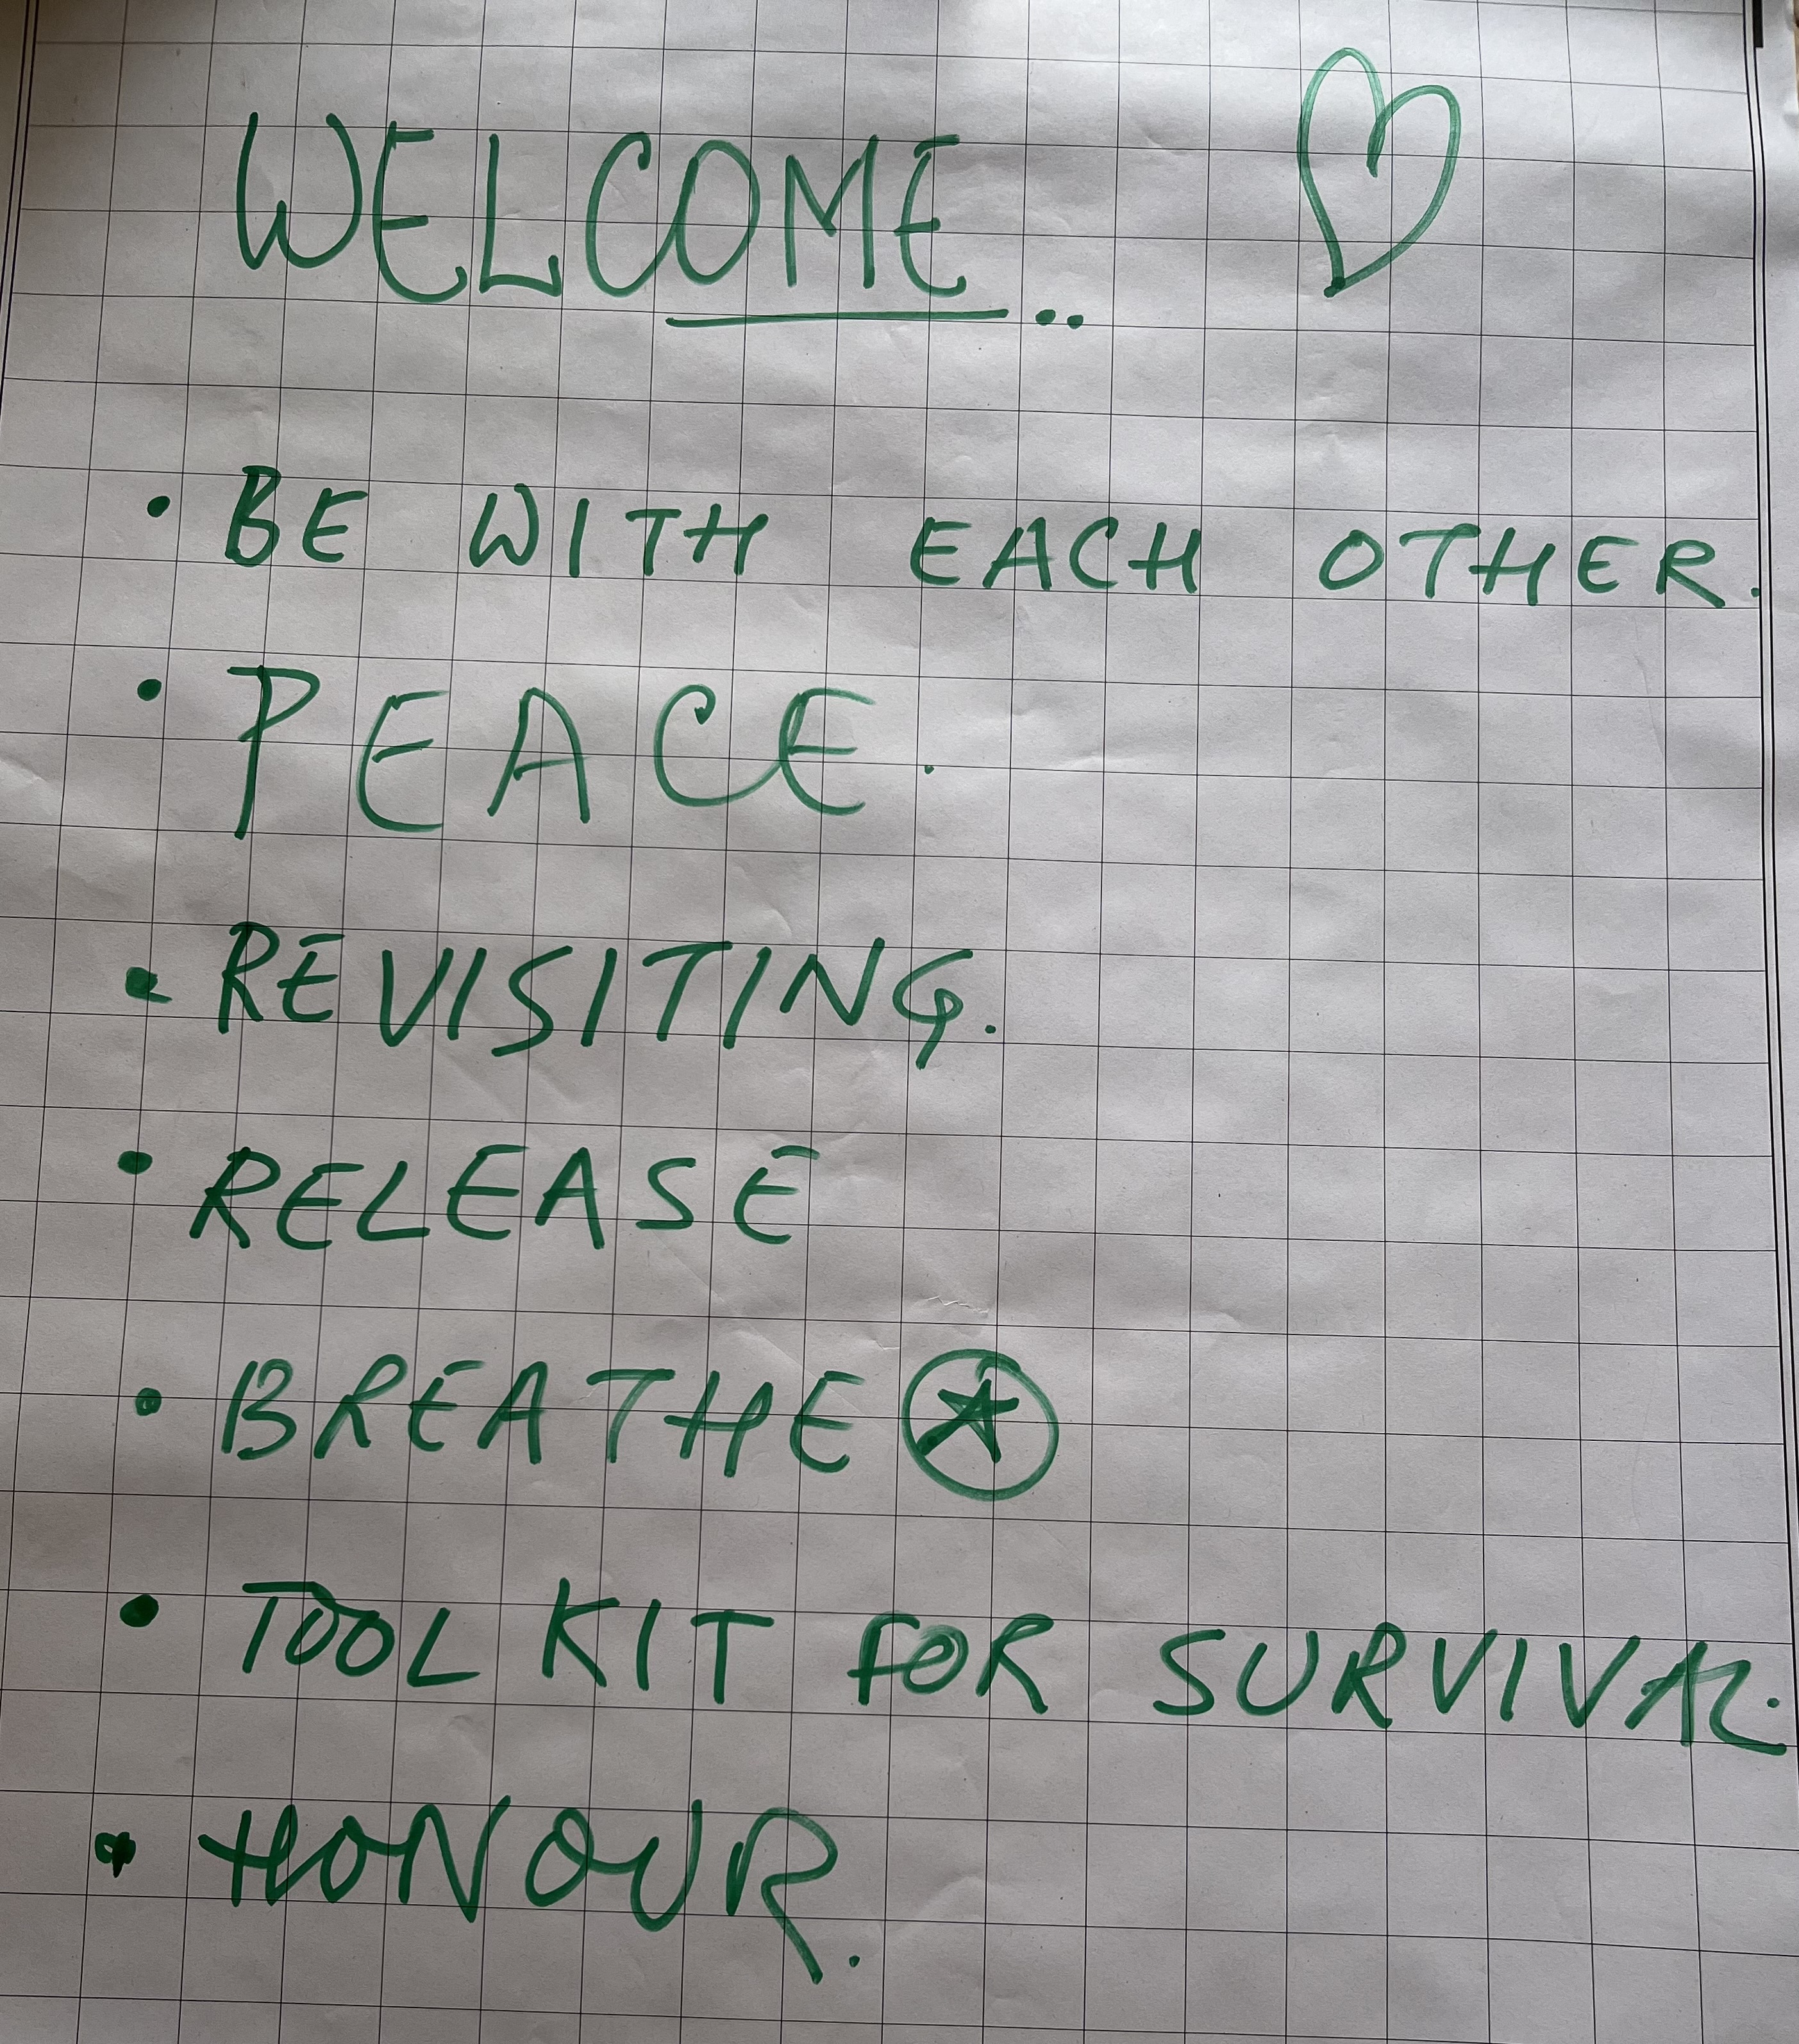 WELCOME..
• BE WITH EACH OTHER.
• PEACE.
• REVISITING.
• RELEASE
• BREATHE
• TOOL KIT FOR SURVIVAL.
• HONOUR.